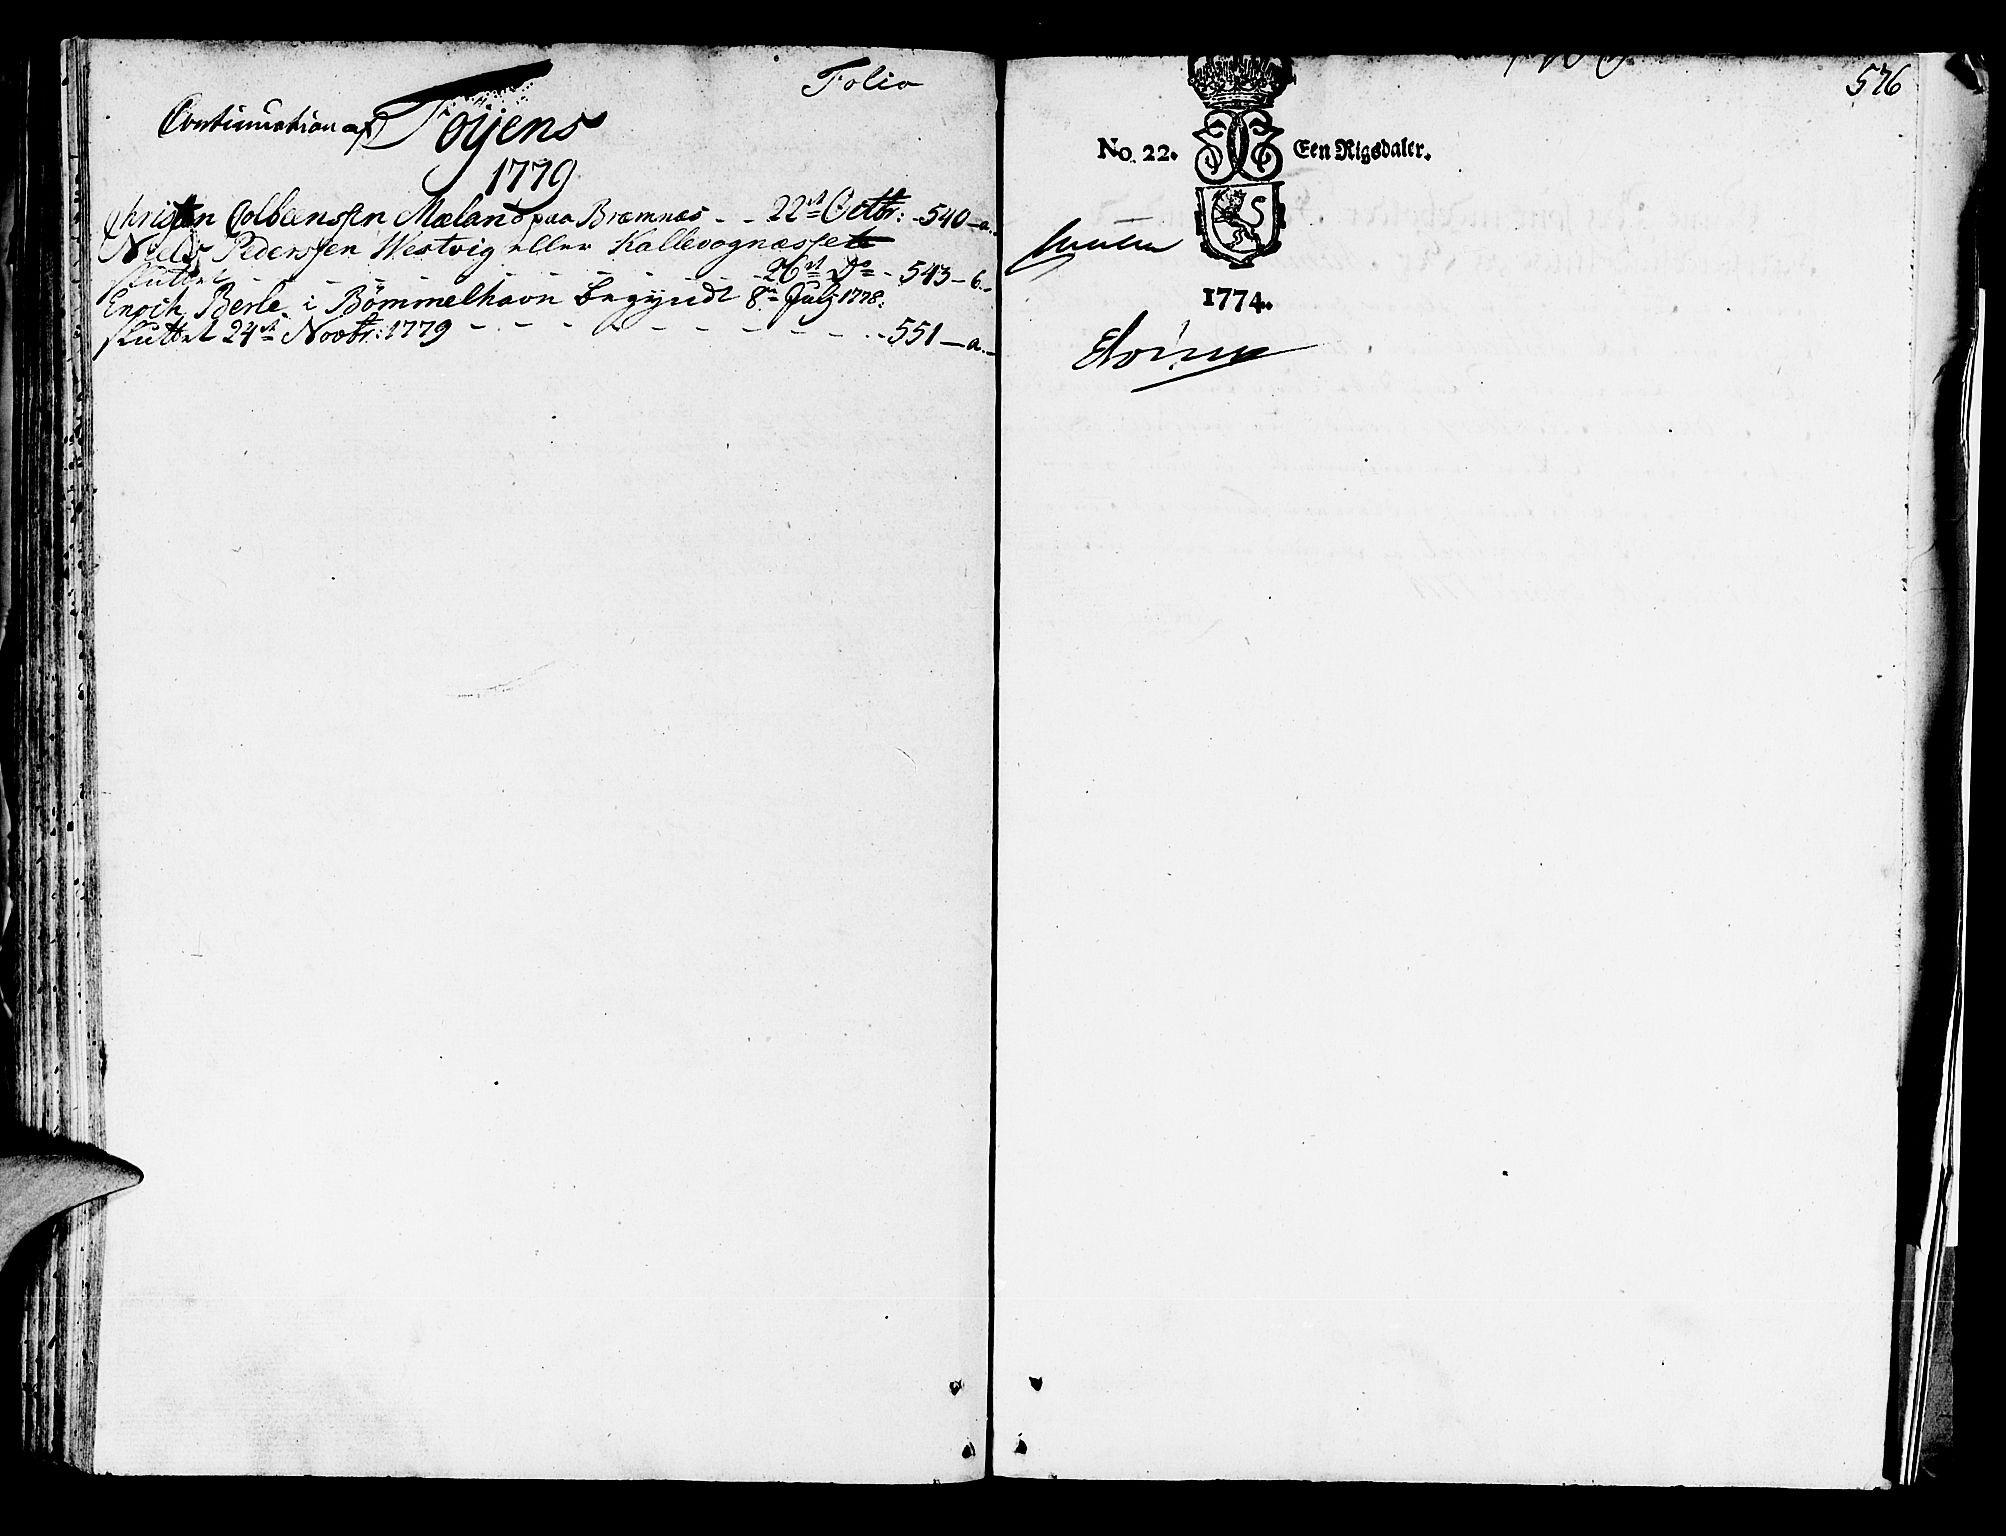 Folio
Continuation af Föÿens
1779
Christen Colbeenssen Mæland paa Bremnæs - - 22de Octbr: - 540 - a.
Niels Pederssen Westvig eller Kallevognæsset
sluttet - - - - - - 26de Do - 543 - b.
Enoch Berle i Bömmelhavn begyndt 8de July 1778.
sluttet 24de Novbr: 1779 - - - - - - - - - 551 - a. -
576
No. 22. Een Rigsdaler.
1774.